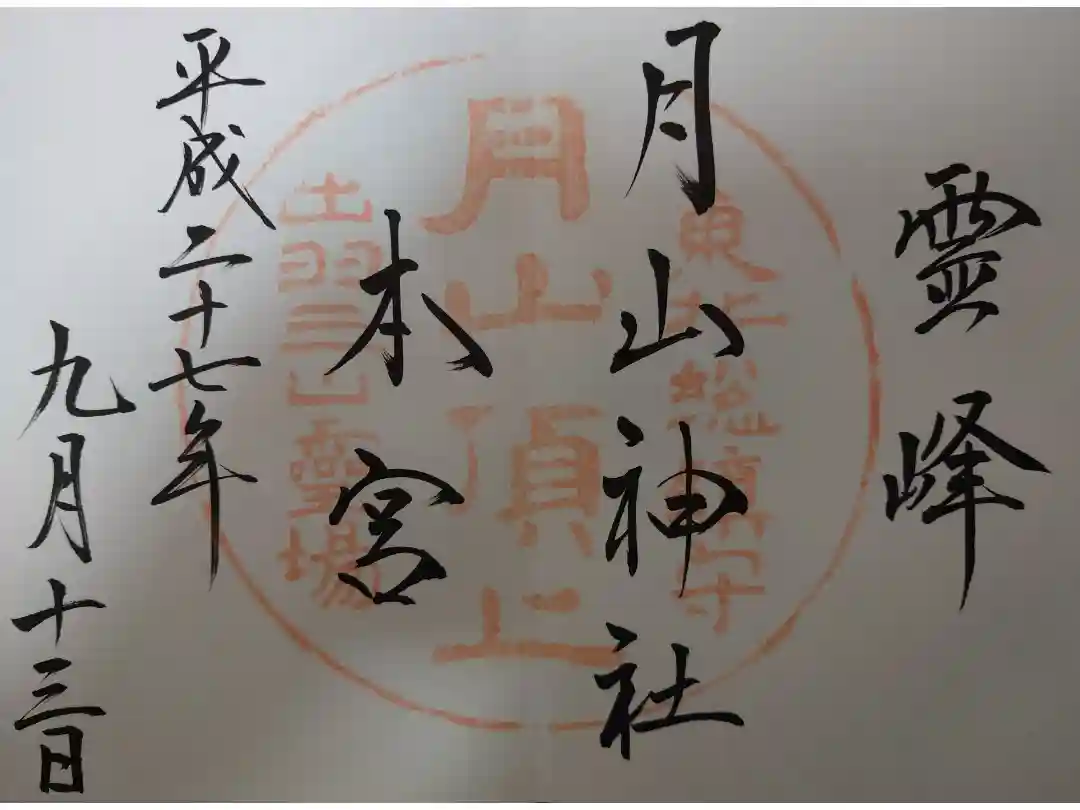 霊峰
月山神社
本宮
平成二十七年
九月十三日
東北総鎮守
月山頂上
出羽三山霊場